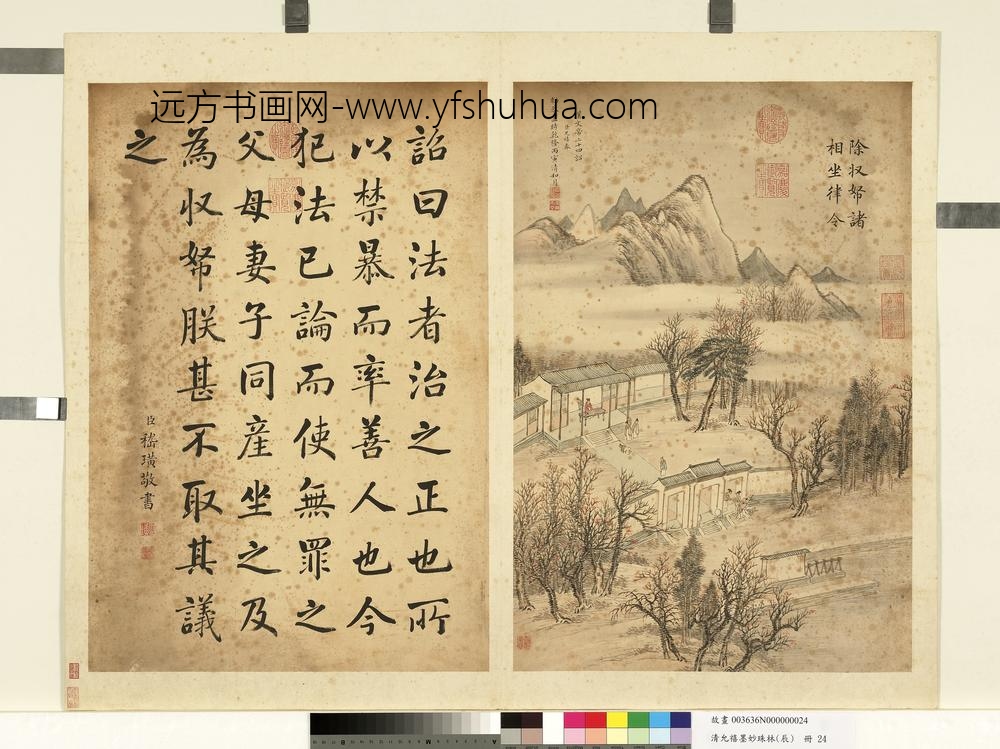 远方书画网-www.yfshuhua.com
除収帑諸
相坐律令
詔曰法者治之正也所
以禁暴而率善人也今
犯法已論而使無罪之
父母妻子同産坐之及
為収帑朕甚不取其議
之
臣嵇璜敬書
故畫 003636N000000024
清允禧墨妙珠林(辰) 冊 24